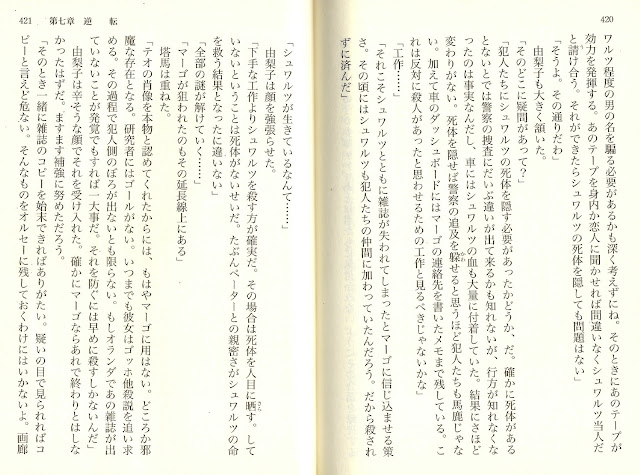 420
ワルツ程度の男の名を騙る必要があるかも深く考えずにね。そのときにあのテープが
効力を発揮する。あのテープを身内か恋人に聞かせれば間違いなくシュワルツ当人だ
と請け合う。それができたらシュワルツの死体を隠しても問題はない」
「そうよ。その通りだわ」
由梨子も大きく頷いた。
「そのどこに疑問があって?」
「犯人たちにシュワルツの死体を隠す必要があったかどうか、だ。確かに死体がある
とないとでは警察の捜査にだいぶ違いが出て来るかも知れないが、行方が知れなくな
ったのは事実なんだし、車にはシュワルツの血も大量に付着していた。結果にさほど
変わりがない。死体を隠せば警察の追及を躱せると思うほど犯人たちも馬鹿じゃな
い。加えて車のダッシュボードにはマーゴの連絡先を書いたメモまで残している。こ
れは反対に殺人があったと思わせるための工作と見るべきじゃないかな」
「工作……」
「それこそシュワルツとともに雑誌が失われてしまったとマーゴに信じ込ませる策
さ。その頃にはシュワルツも犯人たちの仲間に加わっていたんだろう。だから殺され
ずに済んだ」
421 第七章 逆 転
「シュワルツが生きているなんて……」
由梨子は顔を強張らせた。
「下手な工作よりシュワルツを殺す方が確実だ。その場合は死体を人目に晒す。して
いないということは死体がないせいだ。たぶんペーターとの親密さがシュワルツの命
を救う結果となったに違いない」
「全部の謎が解けていく……」
「マーゴが狙われたのもその延長線上にある」
塔馬は重ねた。
「テオの肖像を本物と認めてくれたからには、もはやマーゴに用はない。どころか邪
魔な存在となる。研究者にはゴールがない。いつまでも彼女はゴッホ他殺説を追い求
める。その過程で犯人側のぼろが出ないとも限らない。もしオランダであの雑誌が出
ていないことが発覚でもすれば一大事だ。それを防ぐには早めに殺すしかないんだ」
由梨子は辛そうな顔でそれを受け入れた。確かにマーゴならあれで終わりとはしな
かったはずだ。ますます補強に努めただろう。
「そのとき一緒に雑誌のコピーを始末できればありがたい。疑いの目で見られればコ
ピーと言えど危ない。そんなものをオルセーに残しておくわけにはいかないよ。画廊